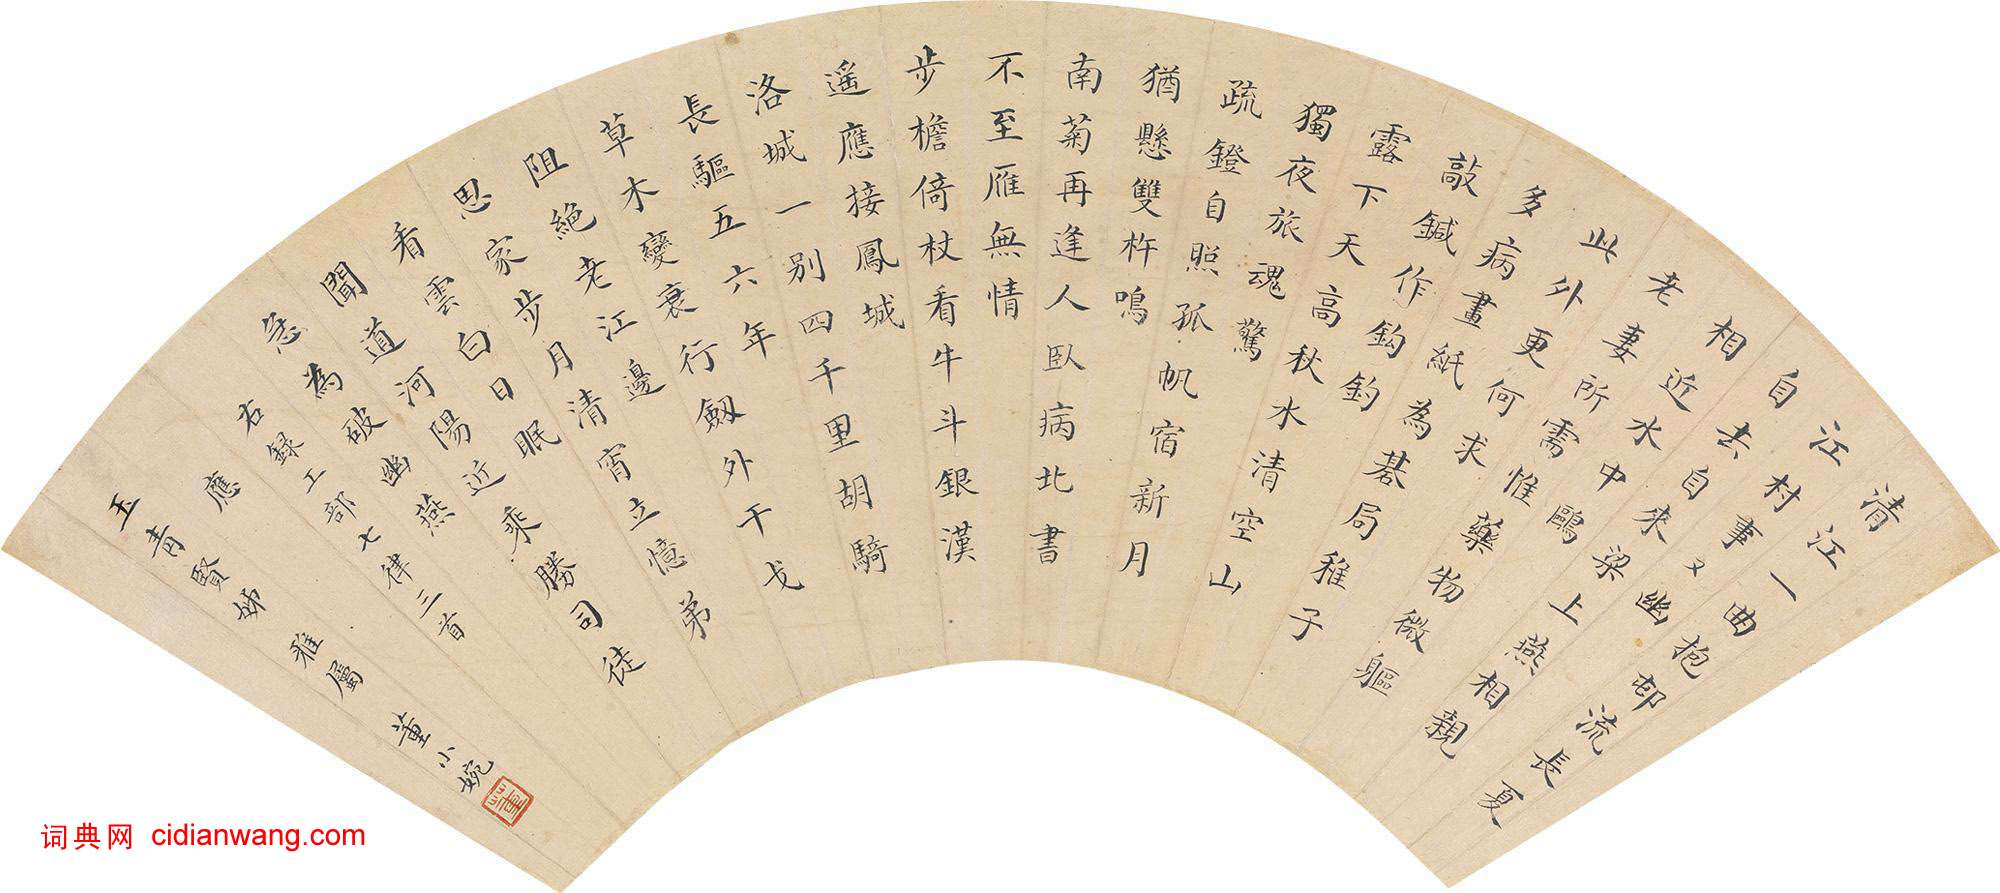 清江一曲抱邨流長夏
江村事々幽
自去自來梁上燕相親
相近水中鷗
老妻所需惟藥物微軀
此外更何求
多病畫紙為碁局稚子
敲鍼作鈎釣
露下天高秋水清空山
獨夜旅魂驚
疏鐙自照孤帆宿新月
猶懸雙杵鳴
南菊再逢人臥病北書
不至雁無情
步檐倚杖看牛斗銀漢
遥應接鳳城
洛城一別四千里胡騎
長驅五六年
草木變衰行劒外干戈
阻絕老江邊
思家步月清宵立憶弟
看雲白日眠
聞道河陽近乘勝司徒
急為破幽燕
右錄工部七律三首
應
玉青賢姊 雅屬 董小婉
董
词典网 cidianwang.com